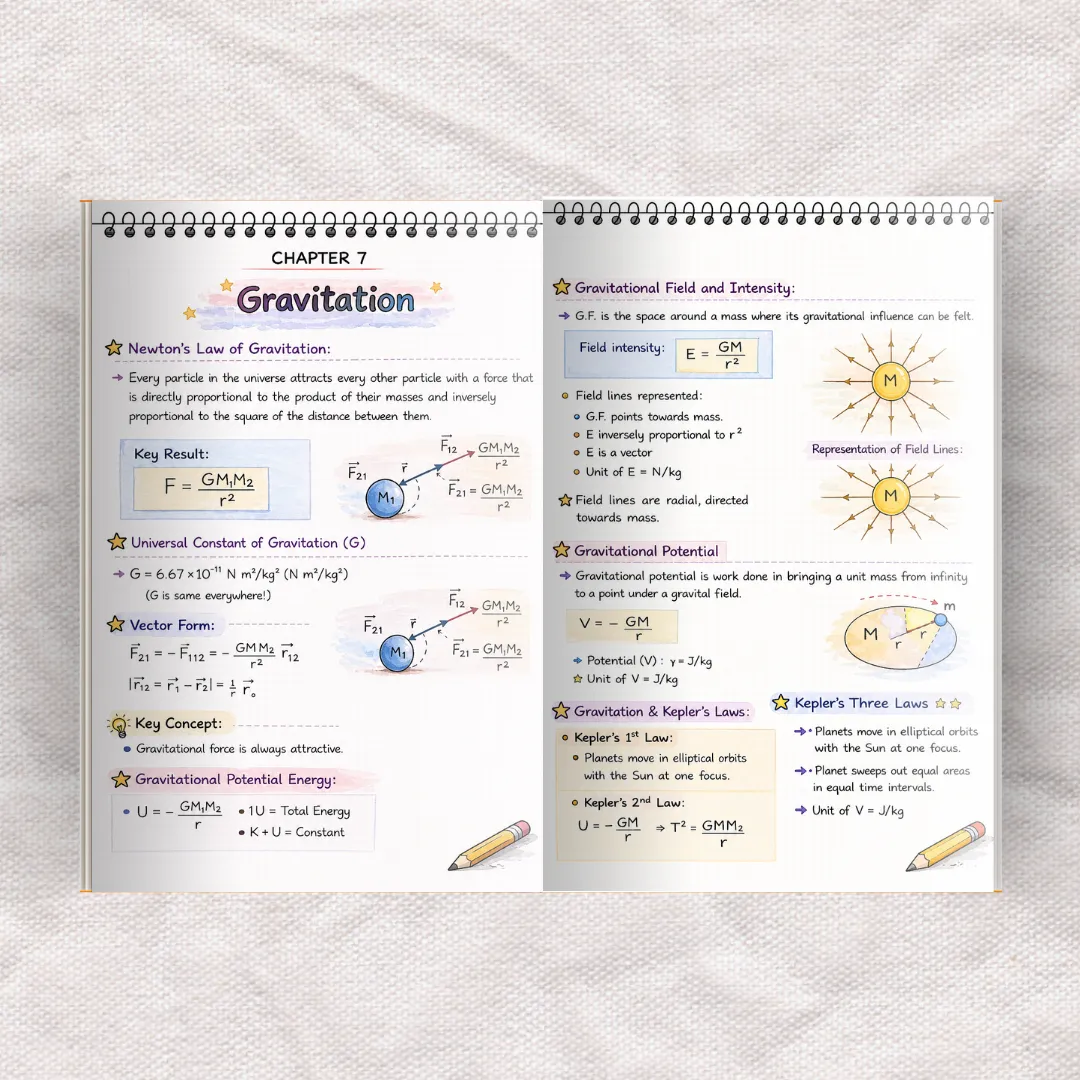 CHAPTER 7
Gravitation
Newton's Law of Gravitation:
→ Every particle in the universe attracts every other particle with a force that
is directly proportional to the product of their masses and inversely
proportional to the square of the distance between them.
Key Result:
F = GM₁M₂ / r²
F⃗₂₁ r⃗ F⃗₁₂ GM₁M₂ / r²
M₁ F⃗₂₁ = GM₁M₂ / r²
Universal Constant of Gravitation (G)
→ G = 6.67 × 10⁻¹¹ N m²/kg² (N m²/kg²)
(G is same everywhere!)
F⃗₂₁ r⃗ F⃗₁₂ GM₁M₂ / r²
M₁ F⃗₂₁ = GM₁M₂ / r²
Vector Form:
F⃗₂₁ = − F⃗₁₁₂ = − GM M₂ / r² r⃗₁₂
|r⃗₁₂ = r⃗₁ − r⃗₂| = 1/r r⃗ₒ
Key Concept:
• Gravitational force is always attractive.
Gravitational Potential Energy:
• U = − GM₁M₂ / r
• 1U = Total Energy
• K + U = Constant
Gravitational Field and Intensity:
→ G.F. is the space around a mass where its gravitational influence can be felt.
Field intensity: E = GM / r²
M
Field lines represented:
• G.F. points towards mass.
• E inversely proportional to r²
• E is a vector
• Unit of E = N/kg
Representation of Field Lines:
M
Field lines are radial, directed
towards mass.
Gravitational Potential
→ Gravitational potential is work done in bringing a unit mass from infinity
to a point under a gravital field.
V = − GM / r
m
M r r
→ Potential (V) : γ = J/kg
Unit of V = J/kg
Gravitation & Kepler's Laws:
• Kepler's 1st Law:
• Planets move in elliptical orbits
with the Sun at one focus.
• Kepler's 2nd Law:
U = − GM / r ⇒ T² = GMM₂ / r
Kepler's Three Laws
→ • Planets move in elliptical orbits
with the Sun at one focus.
→ • Planet sweeps out equal areas
in equal time intervals.
→ Unit of V = J/kg